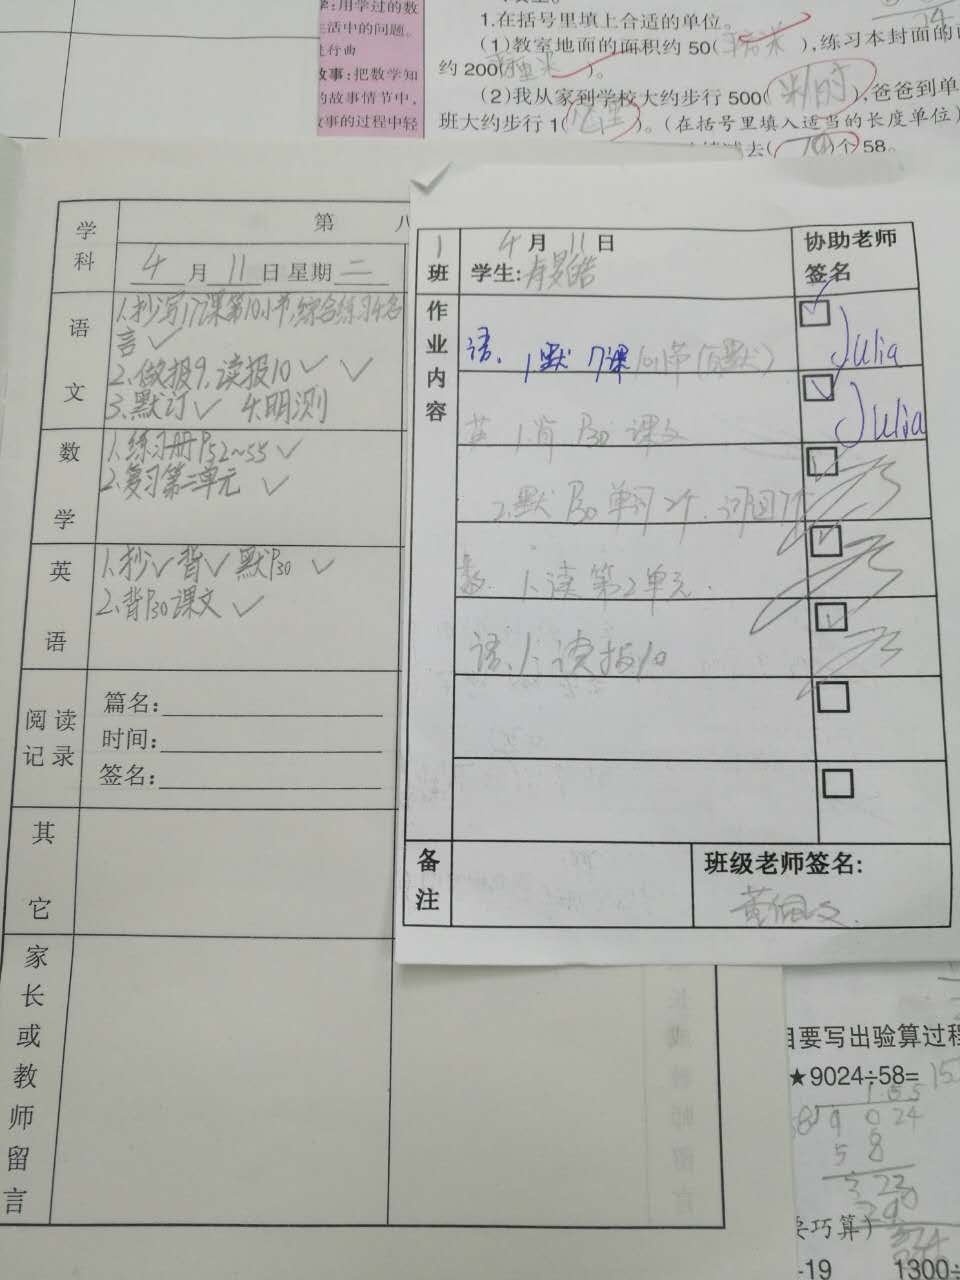 学:用学过的数
活中的问题。
行曲
故事:把数学知
的故事情节中,
事的过程中轻
1.在括号里填上合适的单位。
(1)教室地面的面积约50(平方米),练习本封面的
约200( )。
(2)我从家到学校大约步行500(米/时),爸爸到单
班大约步行1(公里)。(在括号里填入适当的长度单位)
去( )个58。
学科
第 八
4月11日星期二
语文
1.抄写17课第10小节,综合练习
言 ✓
2.做报9,读报10 ✓ ✓
3.默订 ✓ 4.明测
数学
1.练习册P52~55 ✓
2.复习第二单元 ✓
英语
1.抄 ✓ 背 ✓ 默P30 ✓
2.背P30课文 ✓
阅读记录
篇名:
时间:
签名:
其它
家长或教师留言
1班
4月11日
学生:
协助老师
签名
作业内容
语、1.默17课10小节(
Julia
英 1.背P30课文
Julia
2.默P30单词
数、1.读第2单元.
语、1.读报10
备注
班级老师签名:
黄佩文
目要写出验算过程
★9024÷58=15
155
58 9024
58
巧算)
-19 1300÷